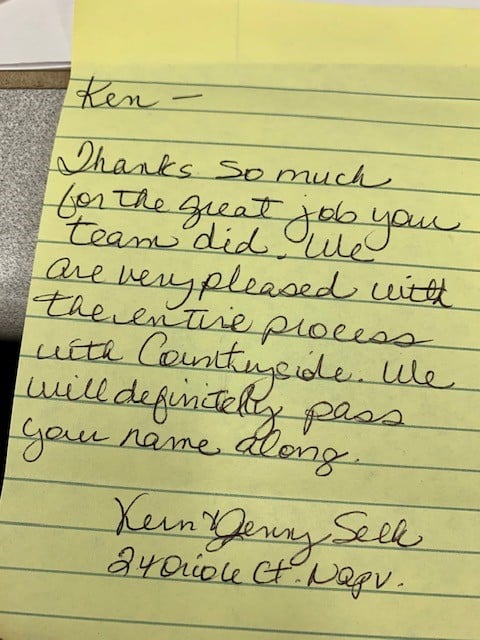 Ken —
Thanks so much
for the great job your
team did. We
are very pleased with
the entire process
with Countryside. We
will definitely pass
your name along.
& Jenny
24 Oriole Ct. Napv.